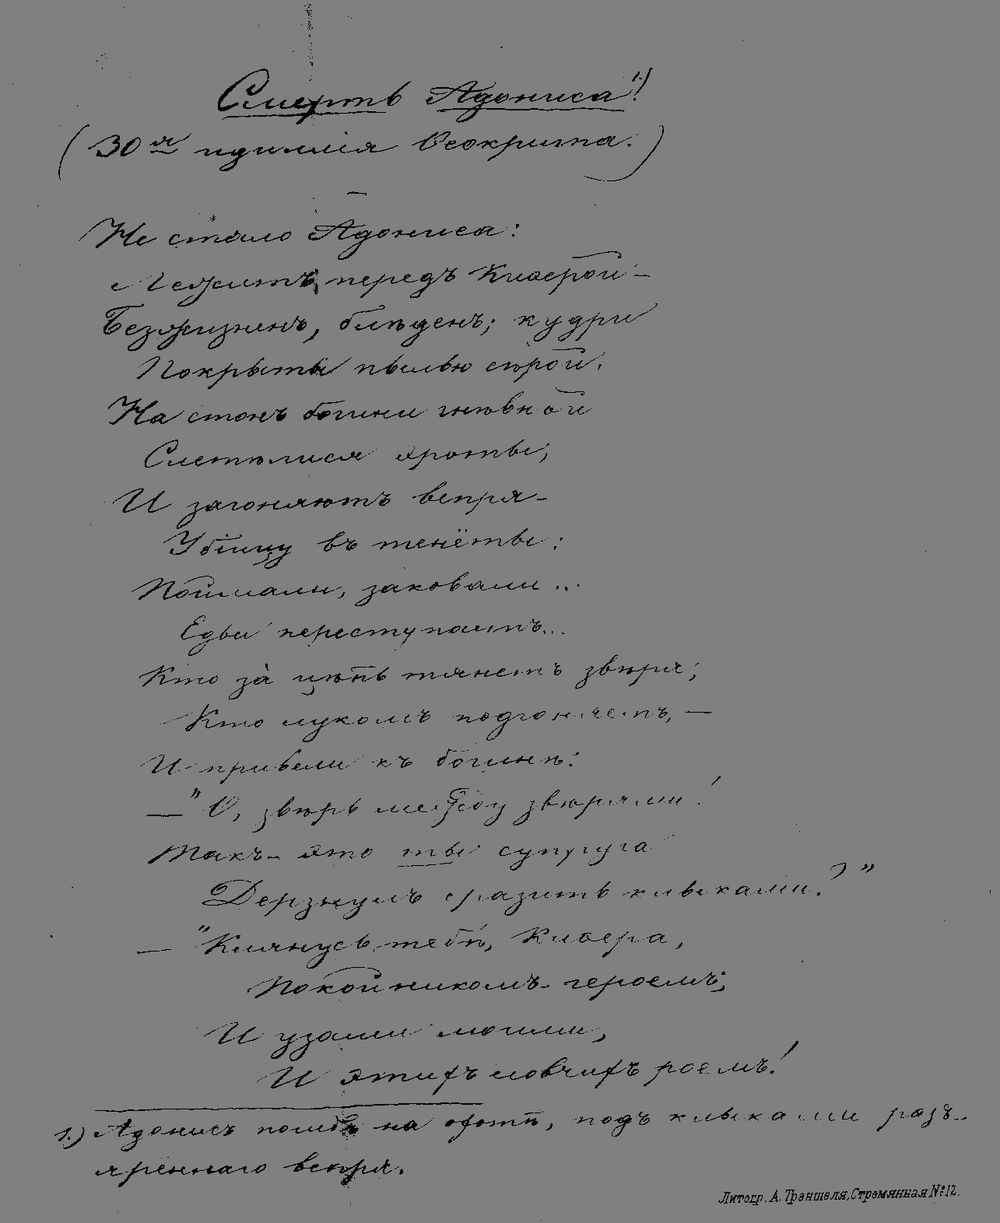 Смерть Адониса 1)
(30я идиллія Ѳеокрита.)
Не стало Адониса:
Лежитъ передъ Киѳерой –
Безжизненъ, блѣденъ; кудри
Покрыты пылью сѣрой.
На стонъ богини гнѣвной
Слетѣлися эроты;
И загоняютъ вепря –
Убійцу въ тенёты:
Поймали, заковали...
Едва переступаетъ...
Кто за̀ цѣпь тянетъ звѣря;
Кто лукомъ подгоняетъ, –
И привели къ богинѣ:
– "О, звѣрь между звѣрями!
Такъ – это ты супруга
Дерзнулъ сразить клыками?"
– "Клянусь тебѣ, Киѳера,
Покойникомъ – героемъ;
И узами моими,
И этихъ ловчихъ роемъ!
1.) Адонисъ погибъ на охотѣ, подъ клыками разъ-
яреннаго вепря.
Литогр. А. Траншеля, Стремянная № 12.